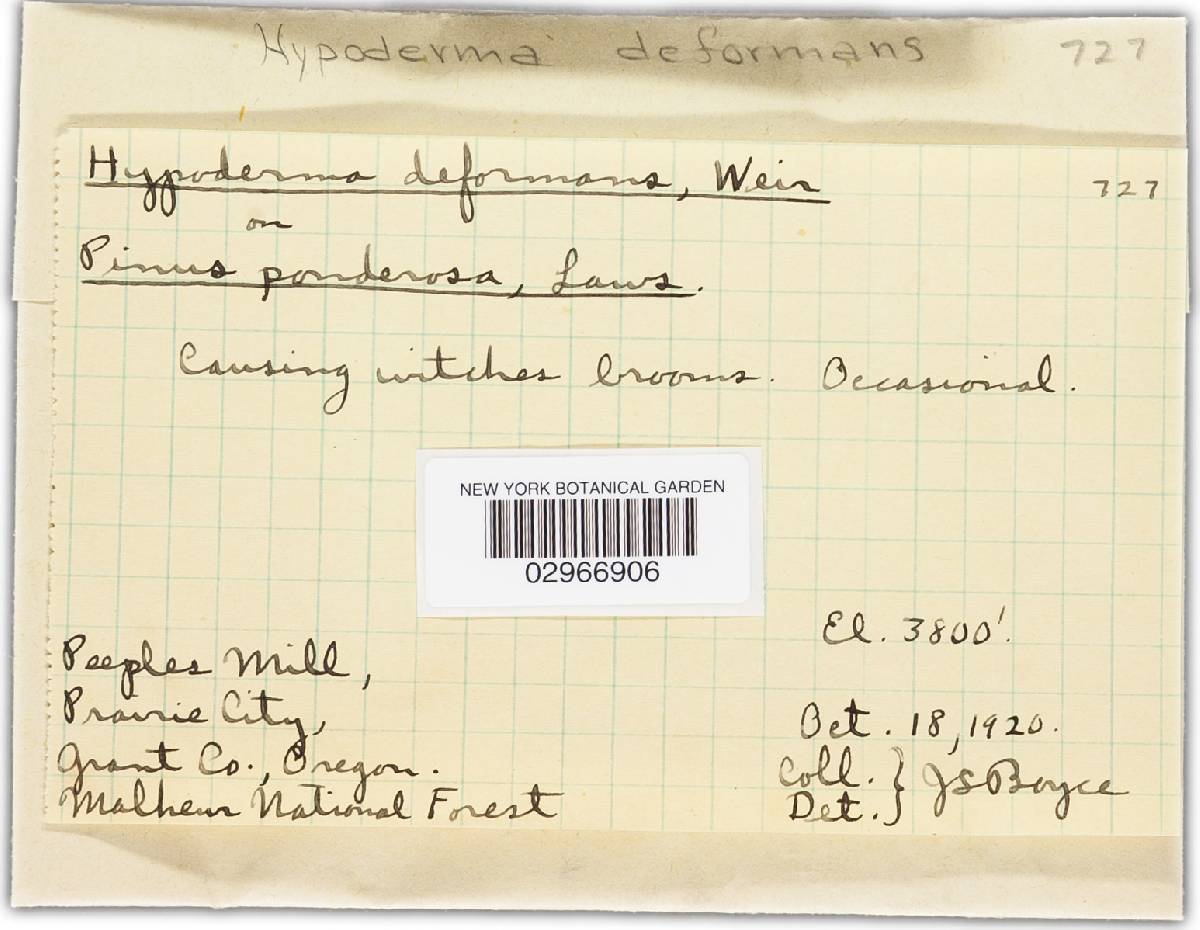 Hypoderma deformans 727
Hypoderma deformans, Weir 727
on
Pinus ponderosa, Laws.
Causing witches brooms. Occasional.
NEW YORK BOTANICAL GARDEN
02966906
El. 3800'.
Peeples Mill,
Prairie City,
Oct. 18, 1920.
Grant Co., Oregon.
Coll. } J S Boyce
Malheur National Forest
Det. }